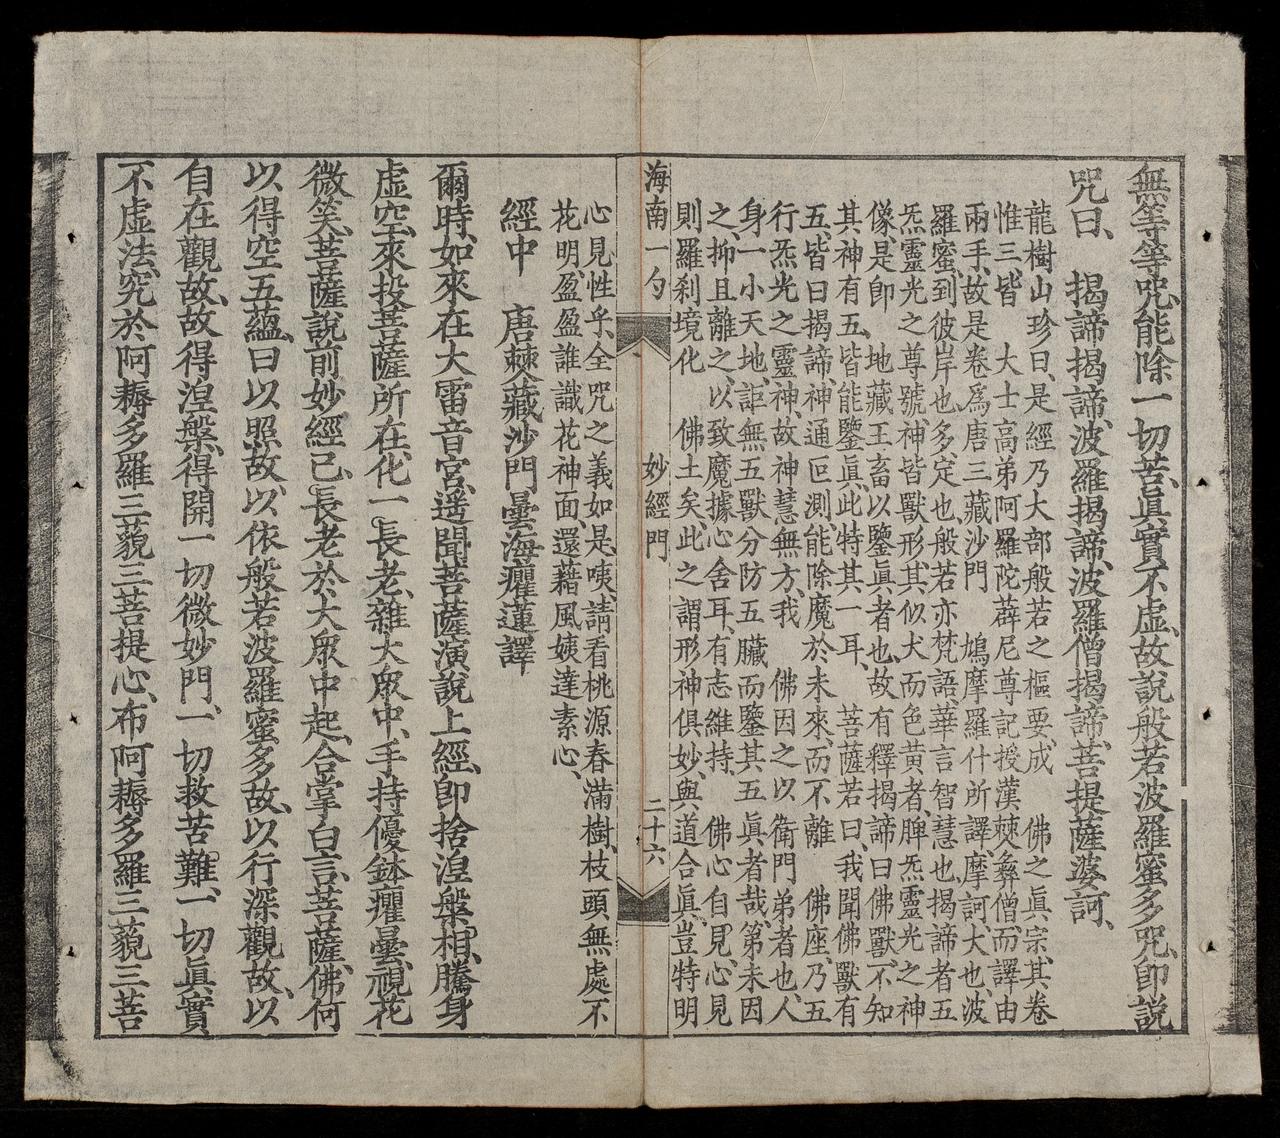 無等等咒、能除一切苦、眞實不虛、故說般若波羅蜜多咒、卽說
咒曰、　揭諦揭諦、波羅揭諦、波羅僧揭諦、菩提薩婆訶、
龍樹山珍曰、是經乃大部般若之樞要、成　佛之眞宗、其卷
惟三、皆　大士高弟阿羅陀薜尼尊記、授漢𣗥彝僧、而譯由
兩手、故是卷爲唐三藏沙門　鳩摩羅什所譯、摩訶、大也、波
羅蜜、到彼岸也、多、定也、般若亦梵語、華言智慧也、揭諦者、五
炁靈光之尊號、神皆獸形、其似犬而色黃者、脾炁靈光之神
像、是卽　地藏王畜以鑒眞者也、故有釋揭諦曰佛獸、不知
其神有五、皆能鑒眞、此特其一耳、　菩薩若曰、我聞佛獸有
五、皆曰揭諦、神通叵測、能除魔於未來、而不離　佛座、乃五
行炁光之靈神、故神慧無方、我　佛因之以衛門弟者也、人
身一小天地、詎無五獸分防五臟、而鑒其五眞者哉、第未因
之、抑且離之、以致魔據心舍耳、有志維持、　佛心自見、心見
則羅刹境化　佛土矣、此之謂形神俱妙、與道合眞、豈特明
海南一勺　妙經門　二十六
心見性乎、全咒之義如是、咦、請看桃源春滿樹、枝頭無處不
花明、盈盈誰識花神面、還藉風姨達素心、
經中　唐𣗥藏沙門、曇海癯蓮譯
爾時、如來在大雷音宮、遥聞菩薩演說上經、卽捨湼槃相、騰身
虛空、來投菩薩所在、化一長老、雜大衆中、手持優鉢癯曇、視花
微笑、菩薩說前妙經已、長老於大衆中起、合掌白言、菩薩、佛何
以得空五蘊、曰以照故、以依般若波羅蜜多故、以行深觀故、以
自在觀故、故得湼槃、得開一切微妙門、一切救苦難、一切眞實
不虛法、究於阿耨多羅三藐三菩提心、布阿耨多羅三藐三菩